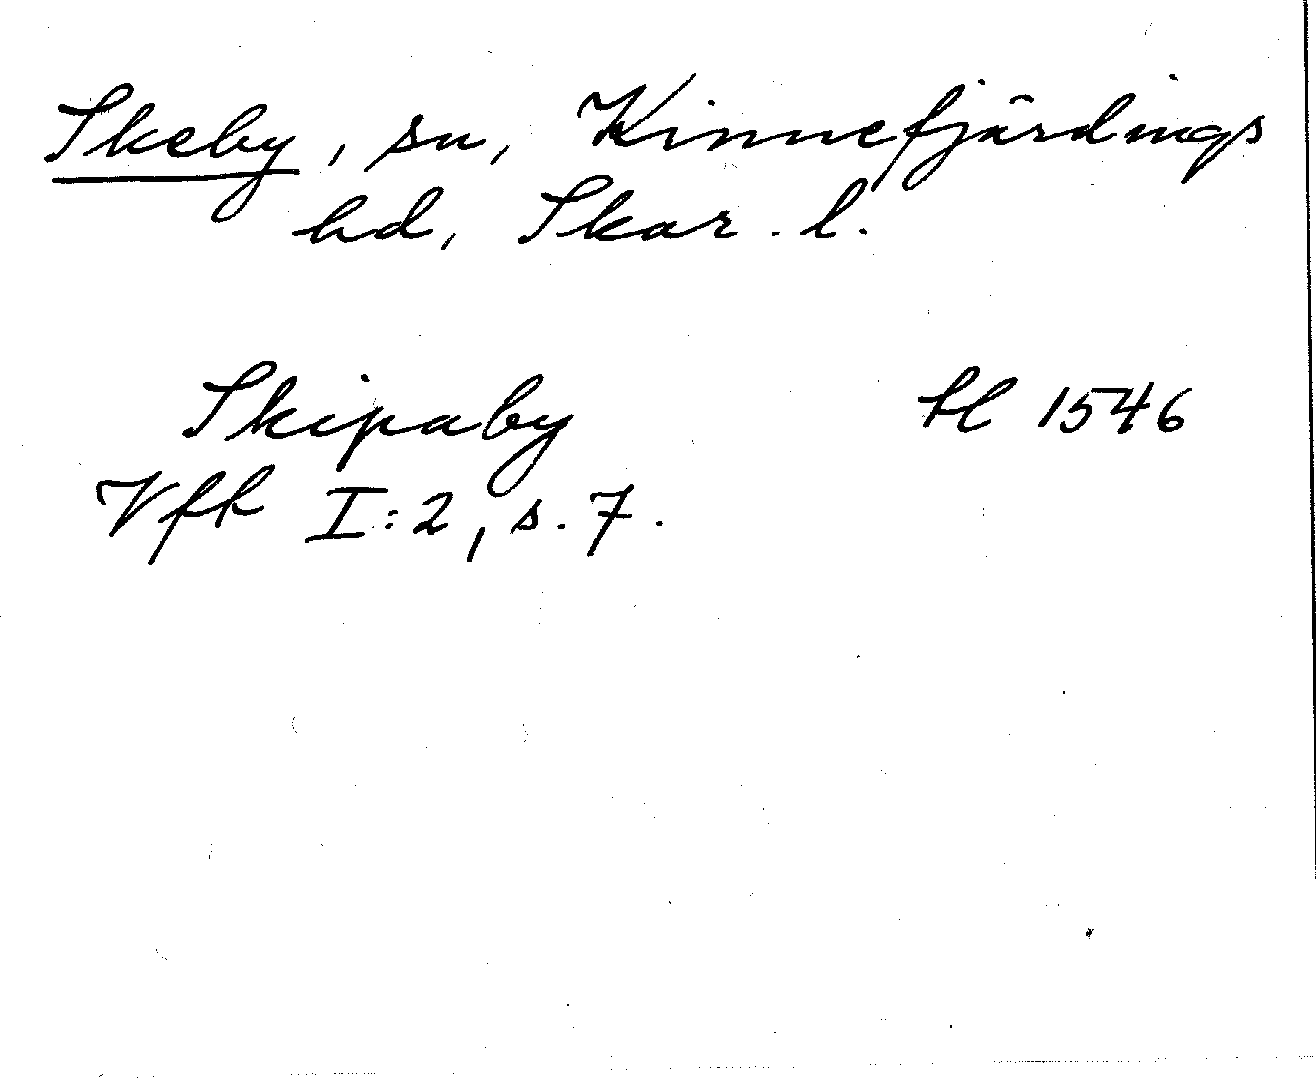 Skeby, sn, Kinnefjärdings
hd, Skar. l.
Skipaby 1546
Vfk I:2, s. 7.